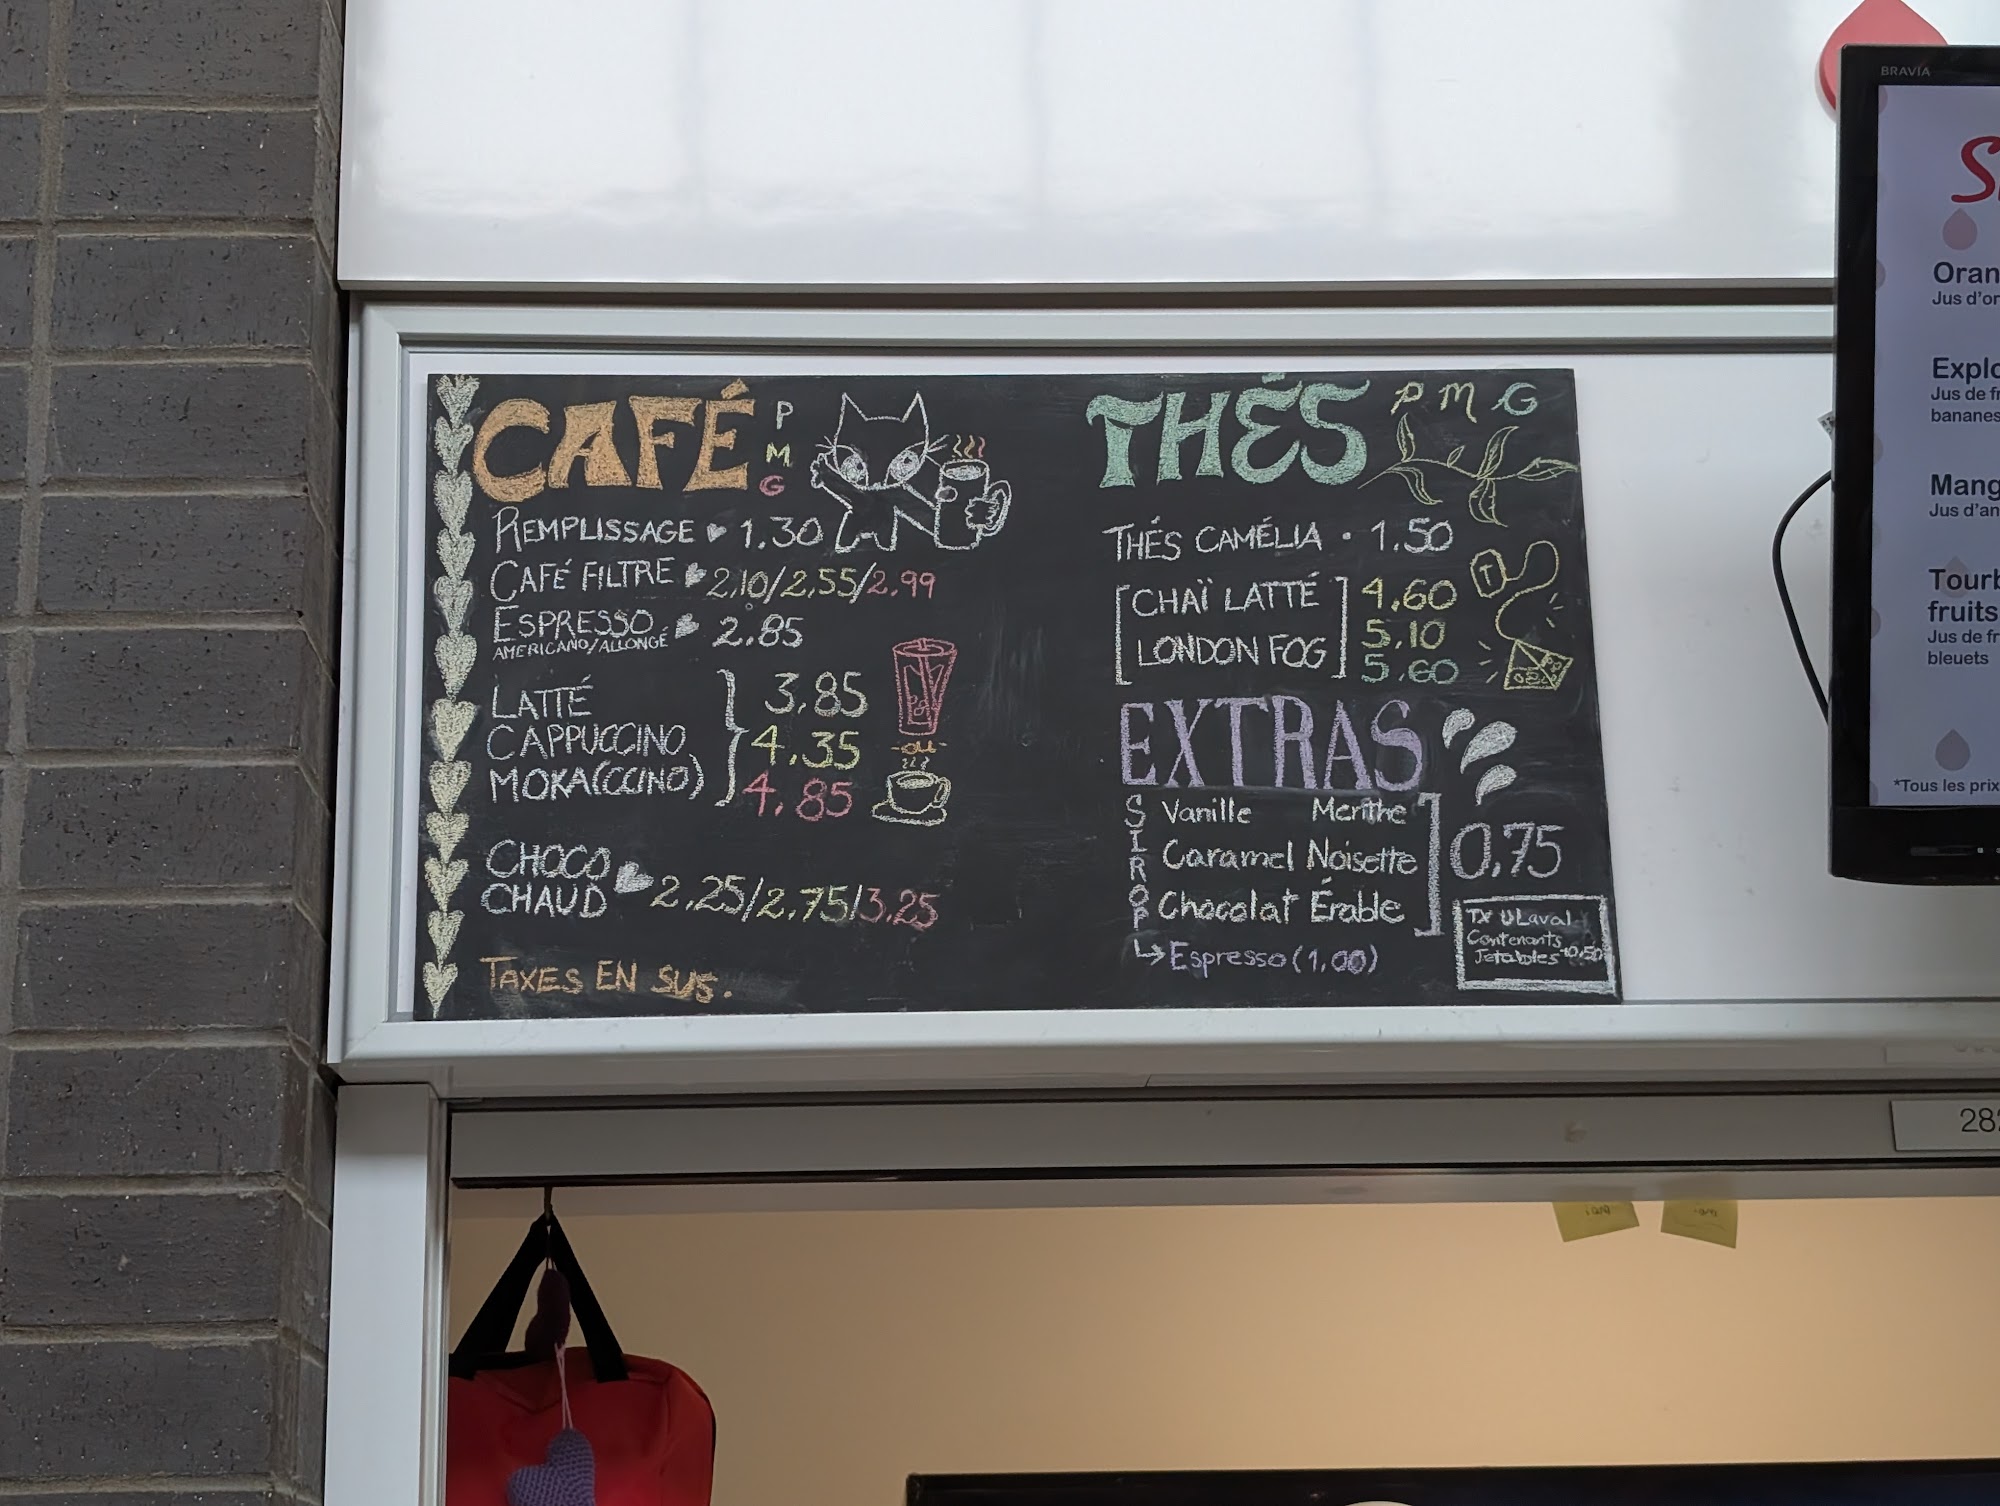 CAFÉ P M G
REMPLISSAGE 1.30
CAFÉ FILTRE 2.10/2.55/2.99
ESPRESSO 2.85
AMERICANO/ALLONGÉ
LATTÉ 3.85
CAPPUCCINO 4.35
MOKA(CCINO) 4.85
-OU-
CHOCO
CHAUD 2.25/2.75/3.25
TAXES EN SUS.
THÉS P M G
THÉS CAMÉLIA · 1.50
[CHAÏ LATTÉ] 4.60
[LONDON FOG] 5.10
5.60
T
EXTRAS
SIROP
Vanille Menthe
Caramel Noisette 0.75
Chocolat Érable
Espresso (1.00)
TX ULaval
Contenants
Jetables +0.50
BRAVIA
Oran
Jus d'or
Explo
Jus de fr
bananes
Mang
Jus d'an
Tourb
fruits
Jus de fr
bleuets
*Tous les prix
282